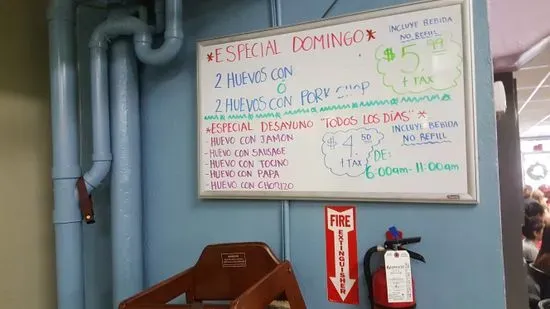 *ESPECIAL DOMINGO*
INCLUYE BEBIDA
NO REFILL
2 HUEVOS CON
Ó
2 HUEVOS CON PORK CHOP
$5.99
+ TAX
*ESPECIAL DESAYUNO "TODOS LOS DÍAS"*
- HUEVO CON JAMÓN
- HUEVO CON SAUSAGE
- HUEVO CON TOCINO
- HUEVO CON PAPA
- HUEVO CON CHORIZO
$4.50
+ TAX
INCLUYE BEBIDA
NO REFILL
DE:
6:00am - 11:00am
FIRE
EXTINGUISHER